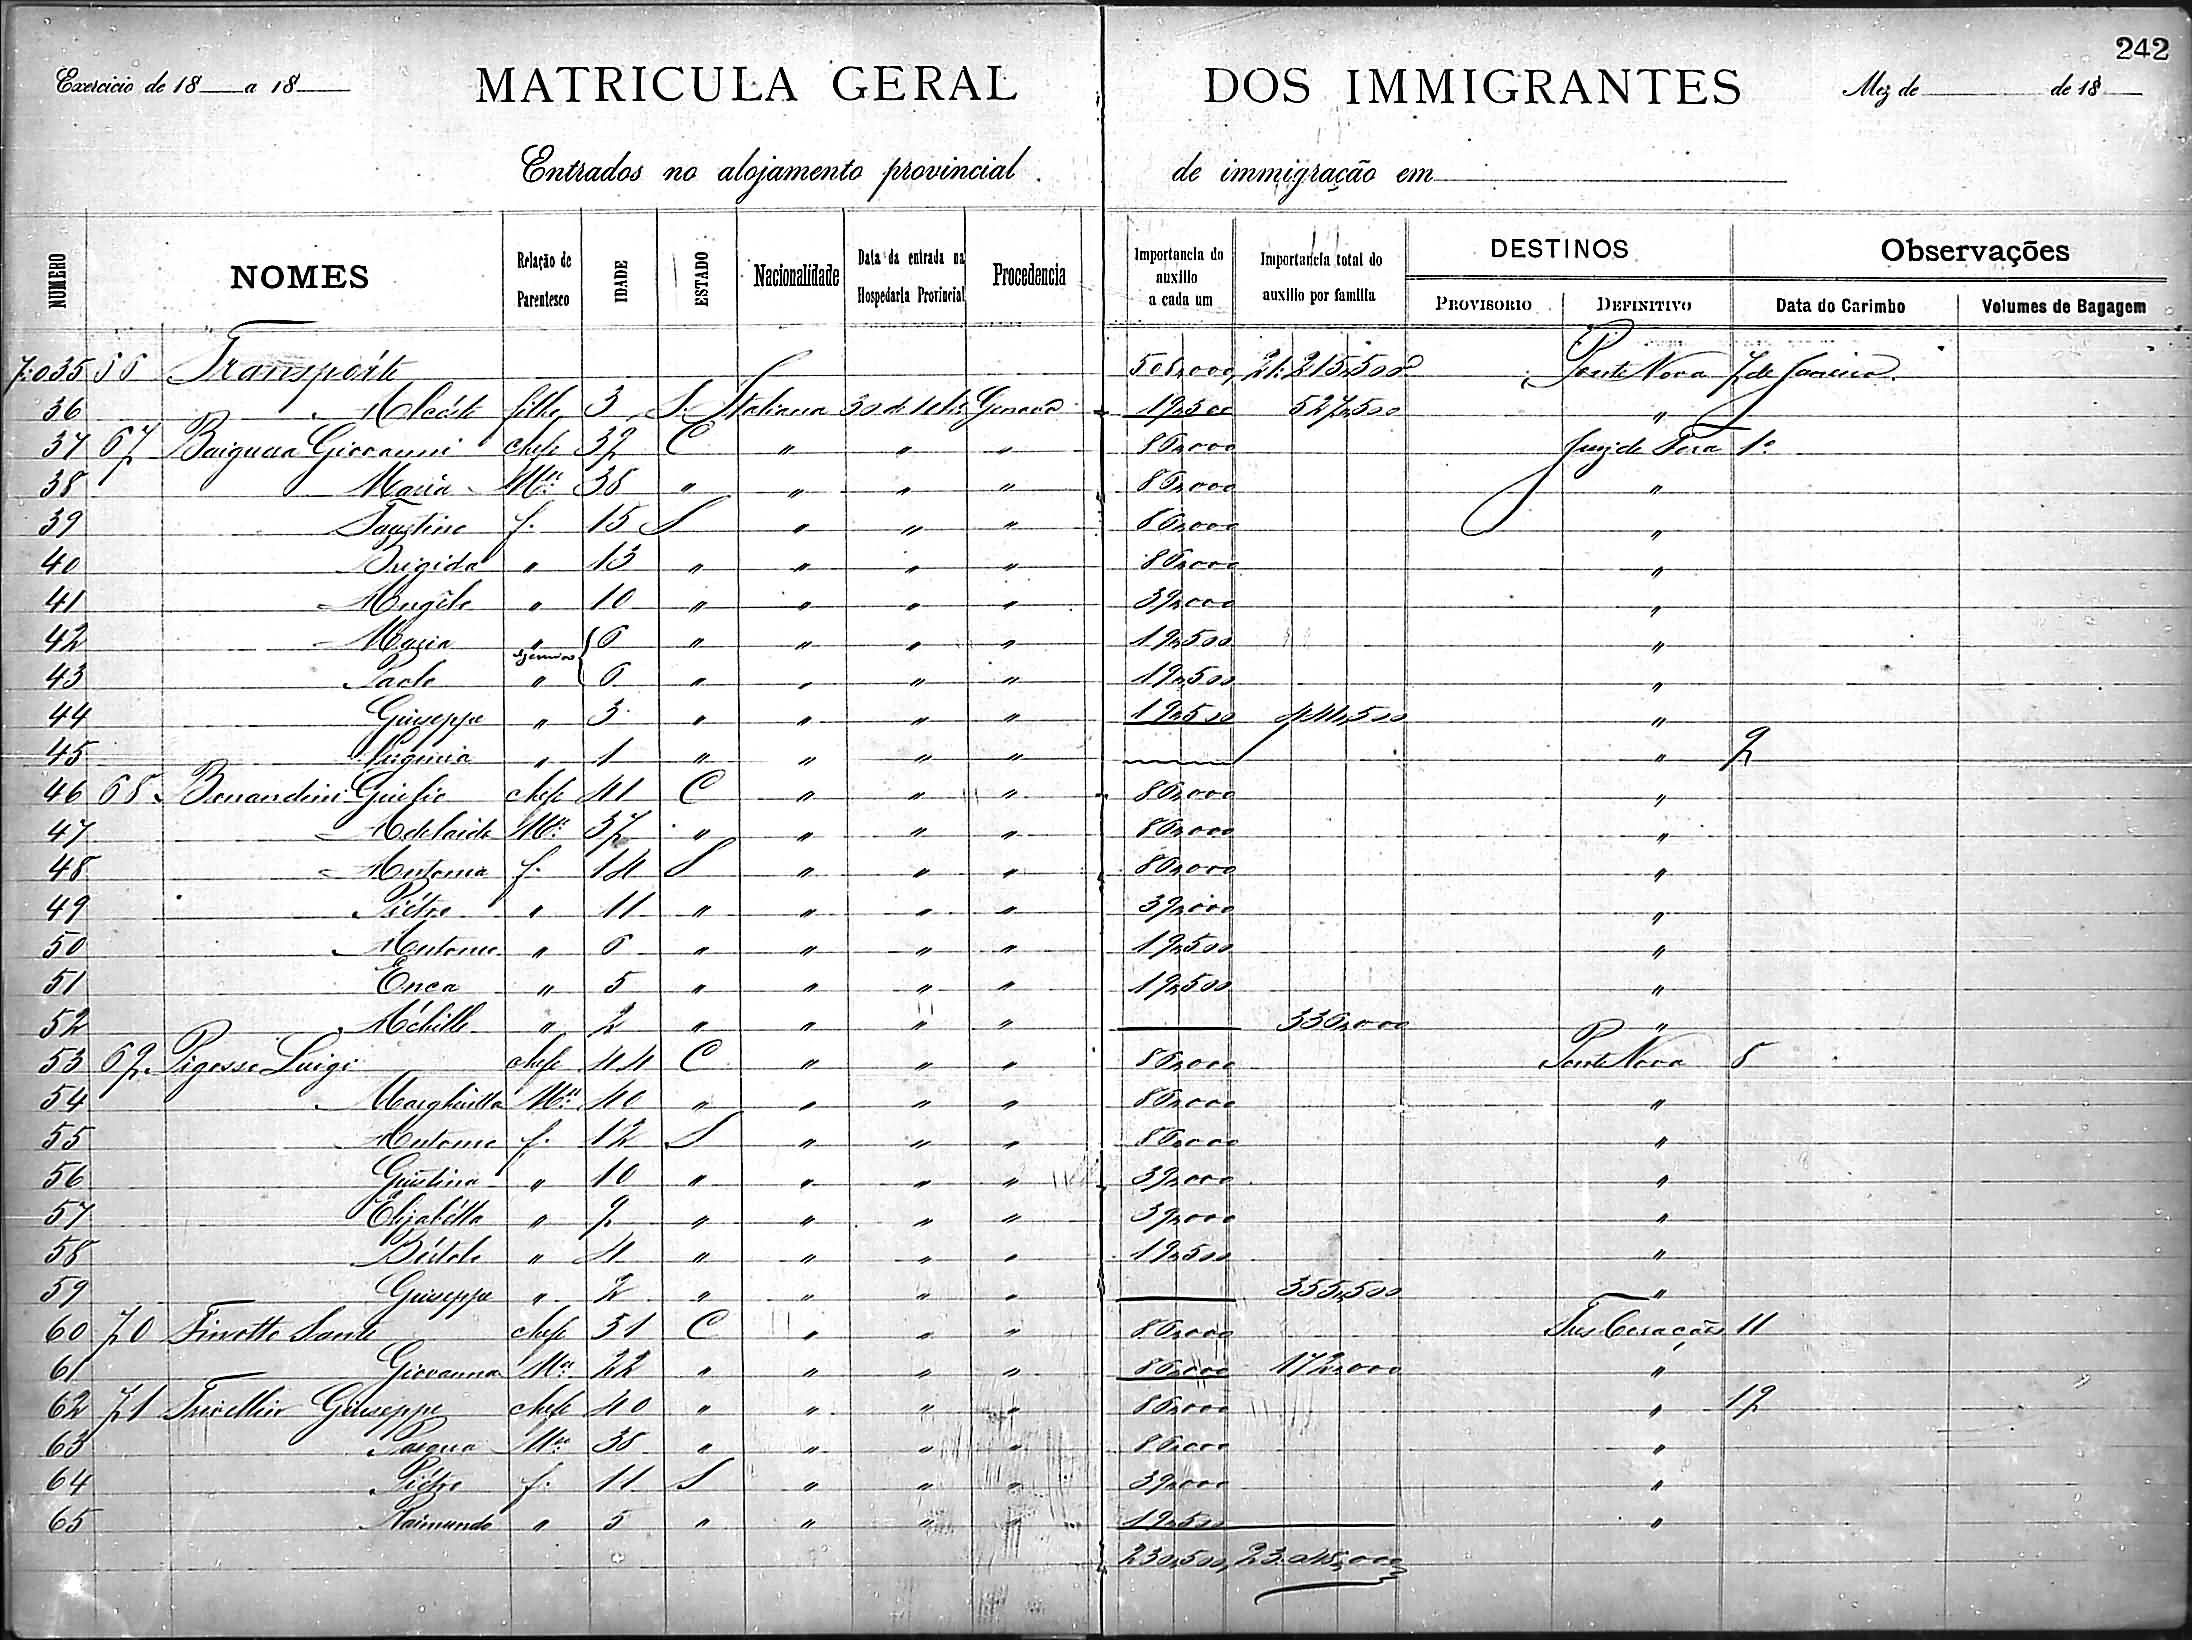 242
Exercicio de 18 a 18 MATRICULA GERAL DOS IMMIGRANTES Mez de de 18
Entrados no alojamento provincial de immigração em
NUMERO NOMES Relação de Parentesco IDADE ESTADO Nacionalidade Data da entrada na Hospedaria Provincial Procedencia Importancia do auxilio a cada um Importancia total do auxilio por familia DESTINOS PROVISORIO DEFINITIVO Observações Data do Carimbo Volumes de Bagagem
7:035 66 Transpórte 508,000, 21:215,500 Ponte Nova 7 de Janeiro
36 filho 3 S. Italiana 30 de Genova 19,500 527,500 "
37 67 Giovanni chefe 39 C " " " 86,000 Juiz de Fora 1º
38 Maria Mer 38 " " " " 86,000 "
39 Faustino f. 15 S " " " 86,000 "
40 Brigida " 13 " " " " 86,000 "
41 Angélo " 10 " " " " 39,000 "
42 Maria " gemeos 6 " " " " 19,500 "
43 Paolo " 6 " " " " 19,500 "
44 Giuseppe " 3 " " " " 19,500 441,500 "
45 " 1 " " " " " 9
46 68 Giulio chefe 41 C " " " 86,000 "
47 Adelaide Mer 37 " " " " 86,000 "
48 Antonia f. 14 S " " " 86,000 "
49 Piétro " 11 " " " " 39,000 "
50 Antonio " 6 " " " " 19,500 "
51 Enea " 5 " " " " 19,500 "
52 Achille " 2 " " " " 336,000 "
53 69 Luigi chefe 44 C " " " 86,000 Ponte Nova 8
54 Margheritta Mer 40 " " " " 86,000 "
55 Antonio f. 12 S " " " 86,000 "
56 Giustina " 10 " " " " 39,000 "
57 Elizabétta " 9 " " " " 39,000 "
58 " 4 " " " " 19,500 "
59 Giuseppe " 2 " " " " 355,500 "
60 70 Finotto Sante chefe 31 C " " " 86,000 Tres Corações 11
61 Giovanna Mer 22 " " " " 86,000 172,000 "
62 71 Giuseppe chefe 40 " " " " 86,000 " 19
63 Pasqua Mer 38 " " " " 86,000 "
64 Piétro f. 11 S " " " 39,000 "
65 Raimundo " 5 " " " " 19,500 "
230,500, 23:048,000